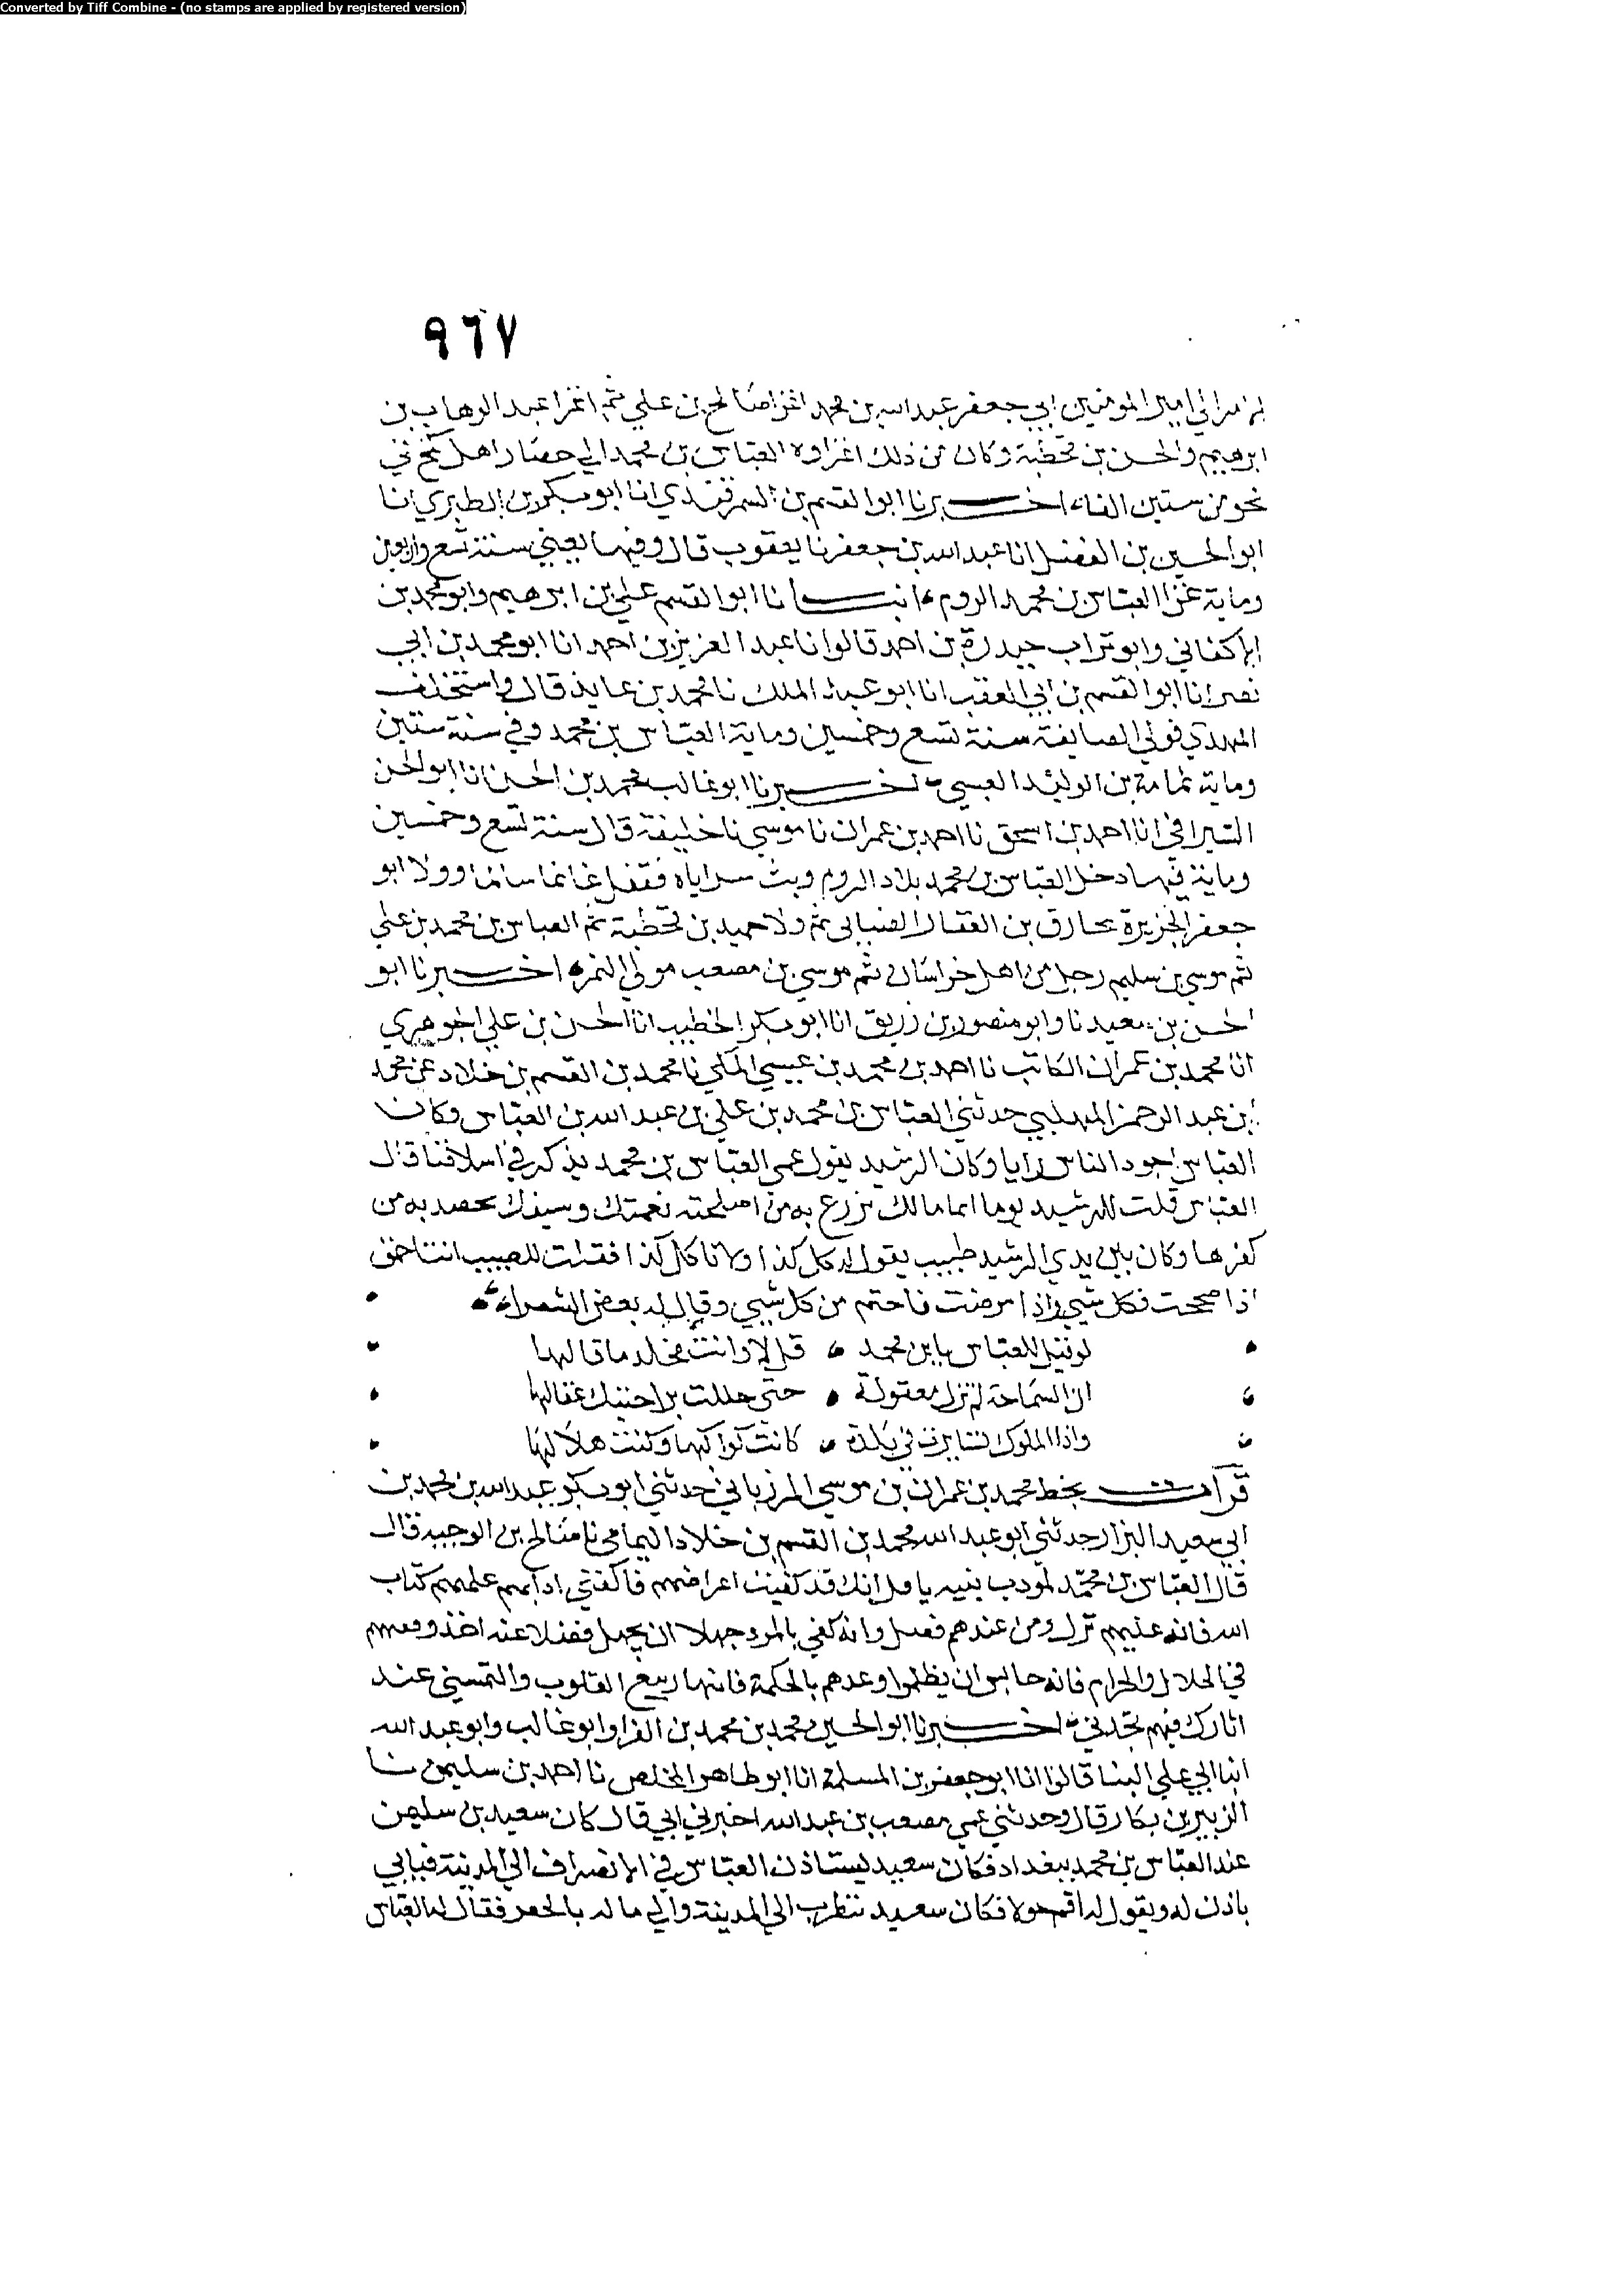 Converted by Tiff Combine - (no stamps are applied by registered version)
٩٦٧
امير المومنين ابي جعفر عبد الله بن محمد اغزا صالح بن علي ثم اغزا عبد الوهاب بن
ابرهيم والحسن بن قحطبة وكان من ذلك اغزاوه العباس بن محمد الي حصار اهل كمخ في
نحو من ستين الفا، اخبرنا ابوا القسم بن السمرقندي انا ابو بكر بن الطبري انا
ابو الحسين بن الفضل انا عبد الله بن جعفر نا يعقوب قال وفيها يعني سنة تسع واربعين
وماية غزا العباس بن محمد الروم، انبانا ابوا القسم علي بن ابرهيم وابو محمد بن
الاكفاني وابو تراب حيدرة بن احمد قالوا نا عبد العزيز بن احمد انا ابو محمد بن ابي
نصر انا ابوا القسم بن ابي العقب انا ابو عبد الملك نا محمد بن عايذ قال واستخلف
المهدي فولي الصايفة سنة تسع وخمسين وماية العباس بن محمد وفي سنة ستين
وماية ثمامة بن الوليد العبسي، اخبرنا ابو غالب محمد بن الحسن انا ابو الحسن
السيرافي انا احمد بن اسحق نا احمد بن عمران نا موسي نا خليفة قال سنة تسع وخمسين
وماية فيها دخل العباس بن محمد بلاد الروم وبث سراياه فقفل غانما سالما وولا ابو
جعفر الجزيرة مخارق بن العقار الضبابي ثم ولا حميد بن قحطبة ثم العباس بن محمد بن علي
ثم موسي بن سليم رجل من اهل خراسان ثم موسي بن مصعب مولي النمر، اخبرنا ابو
الحسن بن سعيد نا وابو منصور بن زريق انا ابو بكر الخطيب انا الحسن بن علي الجوهري
انا محمد بن عمران الكاتب نا احمد بن محمد بن عيسي المكي نا محمد بن القسم بن خلاد عن محمد
بن عبد الرحمن المهلبي حدثني العباس بن محمد بن علي بن عبد الله بن العباس وكان
العباس اجود الناس رايا وكان الرشيد يقول عمي العباس بن محمد يذكر في اسلافنا قال
العباس قلت للرشيد يوما انما مالك تزرع به من اصلحته نعمتك وسيفك تحصد به من
كفرها وكان بين يدي الرشيد طبيب يقول له كل كذا ولا تاكل كذا فقلت للطبيب انت احمق
اذا صححت فكل شي واذا مرضت فاحتم من كل شي وقال له بعض الشعراء
لو قيل للعباس يا ابن محمد ، قل لا وانت مخلد ما قالها
ان السماحة لم تزل معقولة ، حتي حللت براحتيك عقالها
واذا الملوك تسايرت في بلدة ، كانت كواكبها وكنت هلالها
قرات بخط محمد بن عمران بن موسي المرزباني حدثني ابو بكر عبد الله بن محمد بن
ابي سعيد البزار حدثني ابو عبد الله محمد بن القسم بن خلاد اليمامي نا صالح بن الوجيه قال
قال العباس بن محمد لمودب بنيه يا فل انك قد كفيت اعراضهم فاكفني ادابهم علمهم كتاب
الله فانه عليهم نزل ومن عندهم فصل وانه كفي بالمرء جهلا ان يجهل فضلا عنه اخذ وفقههم
في الحلال والحرام فانه حابس ان يظلموا وغذهم بالحكمة فانها ربيع القلوب والتمسني عند
اثارك فيهم تجدني، اخبرنا ابو الحسين محمد بن محمد بن الفرا وابو غالب وابو عبد الله
ابنا ابي علي البنا قالوا انا ابو جعفر بن المسلمة انا ابو طاهر المخلص نا احمد بن سليمن نا
الزبير بن بكار قال وحدثني عمي مصعب بن عبد الله اخبرني ابي قال كان سعيد بن سليمن
عند العباس بن محمد ببغداد فكان سعيد يستاذن العباس في الانصراف الي المدينة فيابي
ياذن له ويقول له اقم حولا فكان سعيد يتطرب الي المدينة والي ماله بالجفر فقال له العباس